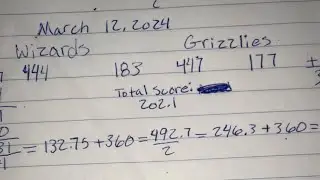 March 12, 2024
Wizards Grizzlies
444 183 447 177 +
Total Score:
202.1
= 132.75 + 360 = 492.7 = 246.3 + 360 =
2